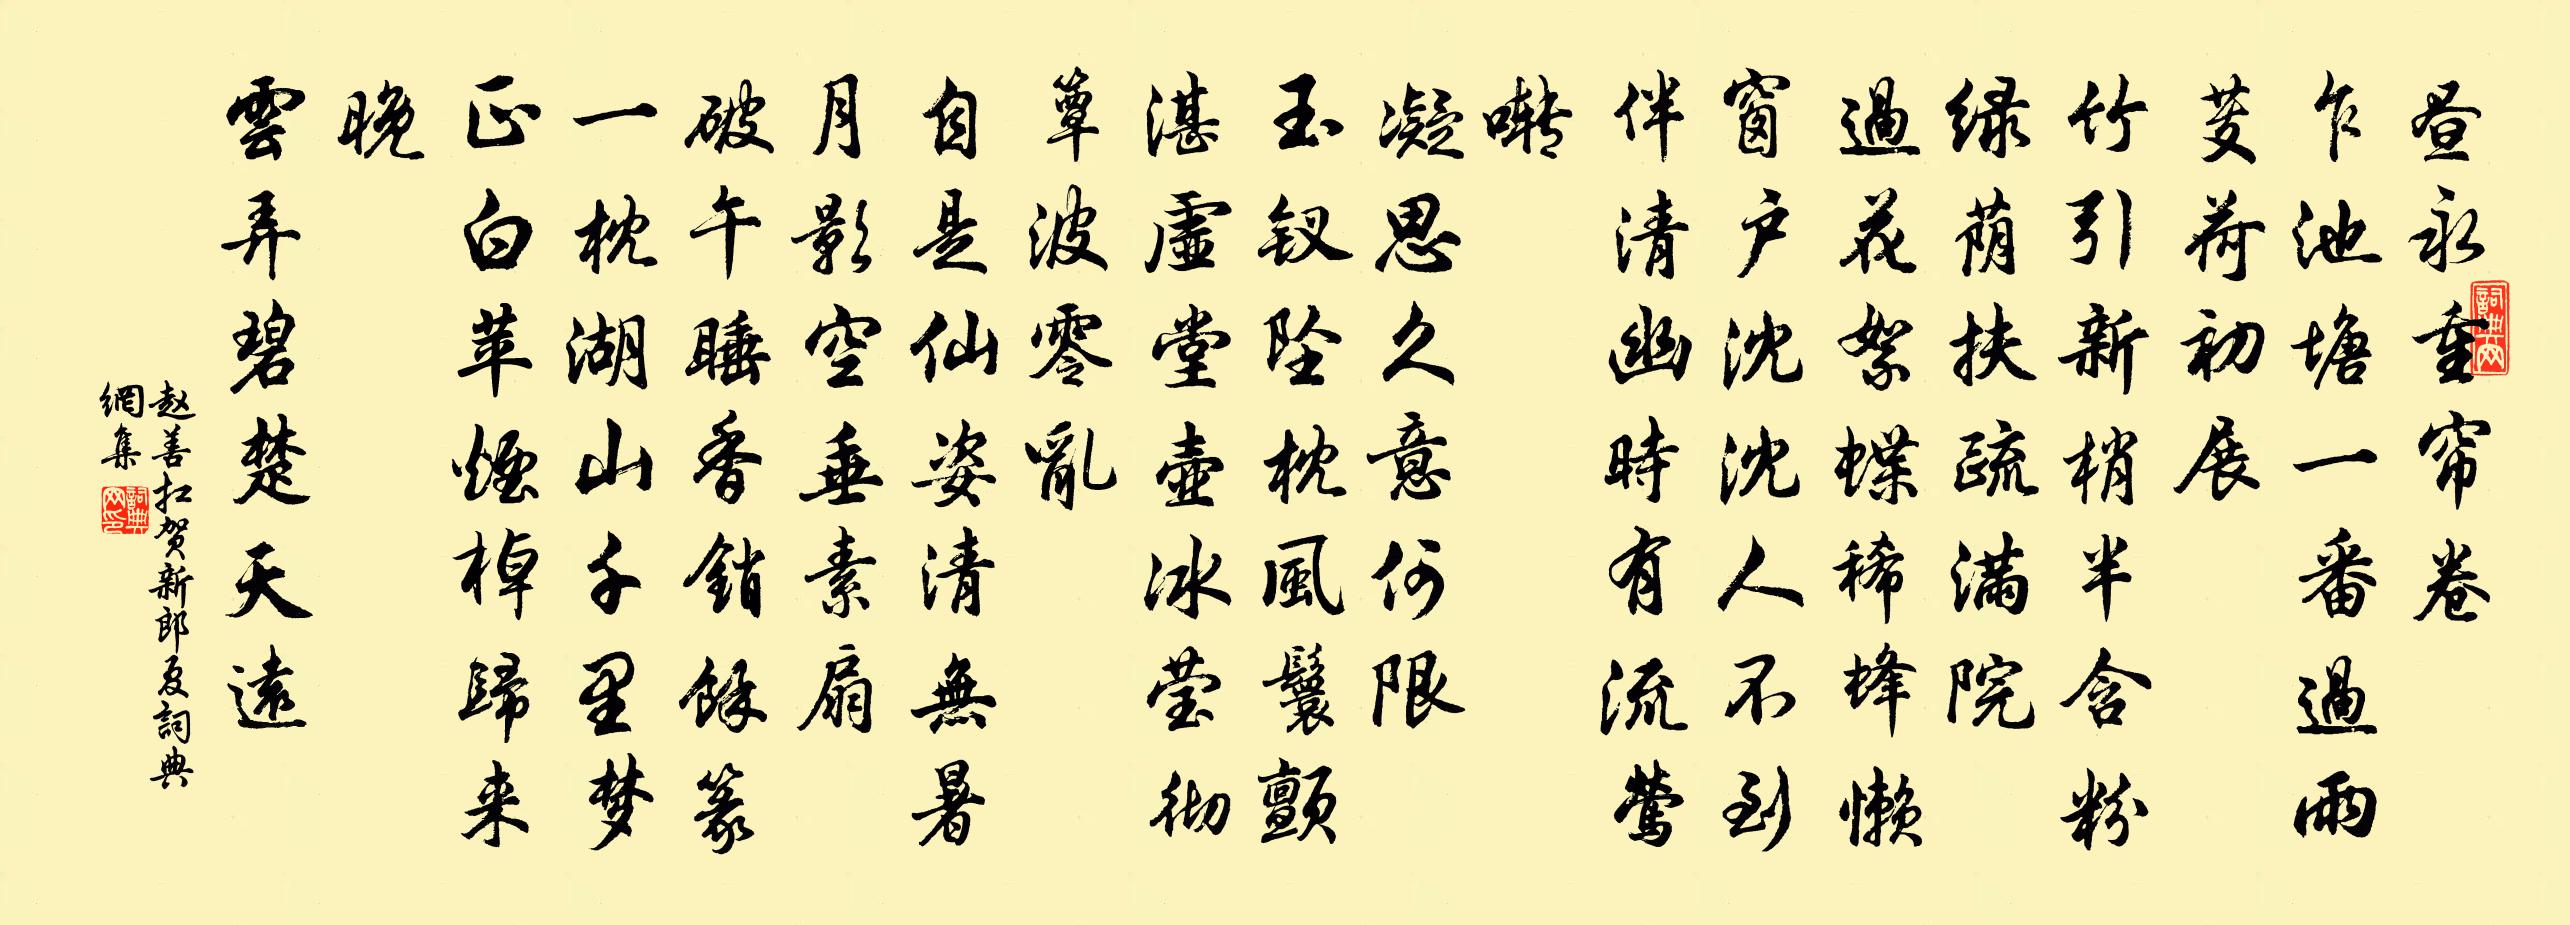 昼永重帘卷
乍池塘一番過雨
芰荷初展
竹引新梢半含粉
绿荫扶疏满院
過花絮蝶稀蜂懒
窗户沈沈人不到
伴清幽時有流莺
啭
凝思久意何限
玉钗坠枕風鬟颤
湛虚堂壶冰莹彻
簟波零亂
自是仙姿清無暑
月影空垂素扇
破午睡香銷餘篆
一枕湖山千里梦
正白苹煙棹歸来
晚
雲弄碧楚天遠
赵善扛贺新郎夏詞典
網集